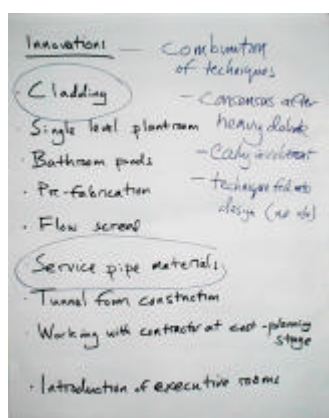 Innovations — Combination
of techniques
· Cladding
- Consensus after
heavy debate
· Single level plantroom
- Early involvement
· Bathroom pods
- technique fed into
design
· Pre-fabrication
· Flow screed
Service pipe materials
· Tunnel form construction
· Working with contractor at cost-planning
stage
· Introduction of executive rooms